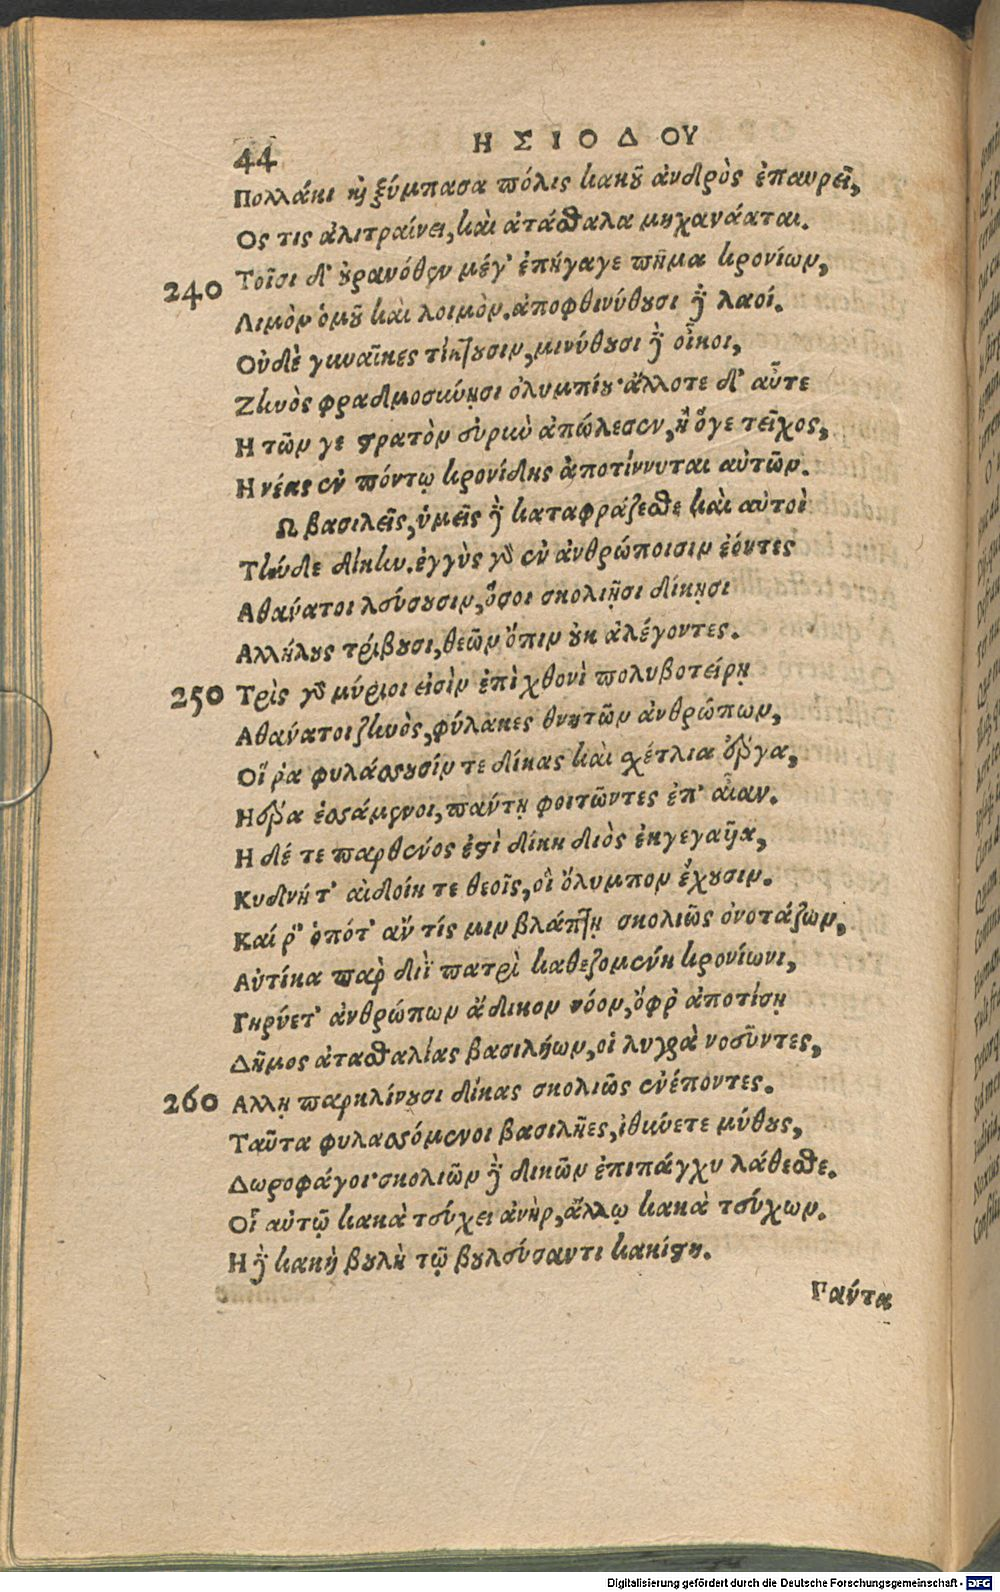 44
ΗΣΙΟΔΟΥ
Πολλάκι καὶ ξύμπασα πόλις κακοῦ ἀνδρὸς ἐπαυρεῖ,
Ος τις ἀλιτραίνει, καὶ ἀτάσθαλα μηχανάαται.
240 Τοῖσι δ' οὐρανόθεν μέγ' ἐπήγαγε πῆμα κρονίων,
Λιμὸν ὁμοῦ καὶ λοιμὸν. ἀποφθινύθουσι δὲ λαοί.
Οὐδὲ γυναῖκες τίκτουσιν, μινύθουσι δὲ οἶκοι,
Ζηνὸς φραδμοσύνῃσι ὀλυμπίου· ἄλλοτε δ' αὖτε
Η τῶν γε στρατὸν εὐρυὺ ἀπώλεσεν, ἢ ὅγε τεῖχος,
Η νέας ἐν πόντῳ κρονίδης ἀποτίννυται αὐτῶν.
Ω βασιλεῖς, ὑμεῖς δὲ καταφράζεσθε καὶ αὐτοὶ
Τήνδε δίκην. ἐγγὺς γὰρ ἐν ἀνθρώποισιν ἐόντες
Αθανάτοι λεύσουσιν, ὅσοι σκολιῇσι δίκῃσι
Αλλήλους τρίβουσι, θεῶν ὄπιν οὐκ ἀλέγοντες.
250 Τρὶς γὰρ μύριοι εἰσὶν ἐπὶ χθονὶ πολυβοτείρῃ
Αθανάτοι ζηνὸς, φύλακες θνητῶν ἀνθρώπων,
Οἵ ῥα φυλάσσουσίν τε δίκας καὶ σχέτλια ἔργα,
Ηέρα ἑσσάμενοι, πάντῃ φοιτῶντες ἐπ' αἶαν.
Η δέ τε παρθένος ἐστὶ δίκη διὸς ἐκγεγαυῖα,
Κυδνή τ' αἰδοίη τε θεοῖς, οἳ ὄλυμπον ἔχουσιν.
Καί ῥ' ὁπότ' ἄν τίς μιν βλάπτῃ σκολιῶς ὀνοτάζων,
Αὐτίκα παρ διῒ πατρὶ καθεζομένη κρονίωνι,
Γηρύετ' ἀνθρώπων ἄδικον νόον, ὄφρ ἀποτίσῃ
Δῆμος ἀτασθαλίας βασιλήων, οἱ λυγρὰ νοεῦντες,
260 Αλλῃ παρκλίνουσι δίκας σκολιῶς ἐνέποντες.
Ταῦτα φυλασσόμενοι βασιλῆες, ἰθύνετε μύθους,
Δωροφάγοι· σκολιῶν δὲ δικῶν ἐπιπάγχυ λάθεσθε.
Οἷ αὐτῷ κακὰ τεύχει ἀνὴρ, ἄλλῳ κακὰ τεύχων.
Η δὲ κακὴ βουλὴ τῷ βουλεύσαντι κακίστη.
Γαύτα
Digitalisierung gefördert durch die Deutsche Forschungsgemeinschaft - DFG